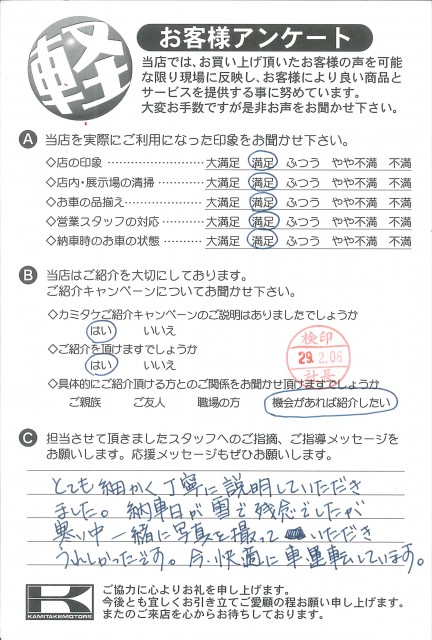 軽
お客様アンケート
当店では、お買い上げ頂いたお客様の声を可能
な限り現場に反映し、お客様により良い商品と
サービスを提供する事に努めています。
大変お手数ですが是非お声をお聞かせ下さい。
A 当店を実際にご利用になった印象をお聞かせ下さい。
◇店の印象 ………………… 大満足 満足 ふつう やや不満 不満
◇店内・展示場の清掃 ……… 大満足 満足 ふつう やや不満 不満
◇お車の品揃え ……………… 大満足 満足 ふつう やや不満 不満
◇営業スタッフの対応 ……… 大満足 満足 ふつう やや不満 不満
◇納車時のお車の状態 ……… 大満足 満足 ふつう やや不満 不満
B 当店はご紹介を大切にしております。
ご紹介キャンペーンについてお聞かせ下さい。
◇カミタケご紹介キャンペーンのご説明はありましたでしょうか
はい いいえ
◇ご紹介を頂けますでしょうか
はい いいえ
検印
29.2.06
社長
◇具体的にご紹介頂ける方とのご関係をお聞かせ頂けますでしょうか
ご親族 ご友人 職場の方 機会があれば紹介したい
C 担当させて頂きましたスタッフへのご指摘、ご指導メッセージを
お願いします。応援メッセージもぜひお願いします。
とても細かく丁寧に説明していただき
ました。納車日が雪で残念でしたが
寒い中一緒に写真を撮って いただき
うれしかったです。今、快適に車運転しています。
K
KAMITAKEMOTORS
ご協力に心よりお礼を申し上げます。
今後とも宜しくお引き立てご愛顧の程お願い申し上げます。
またのご来店を心からお待ちしております。